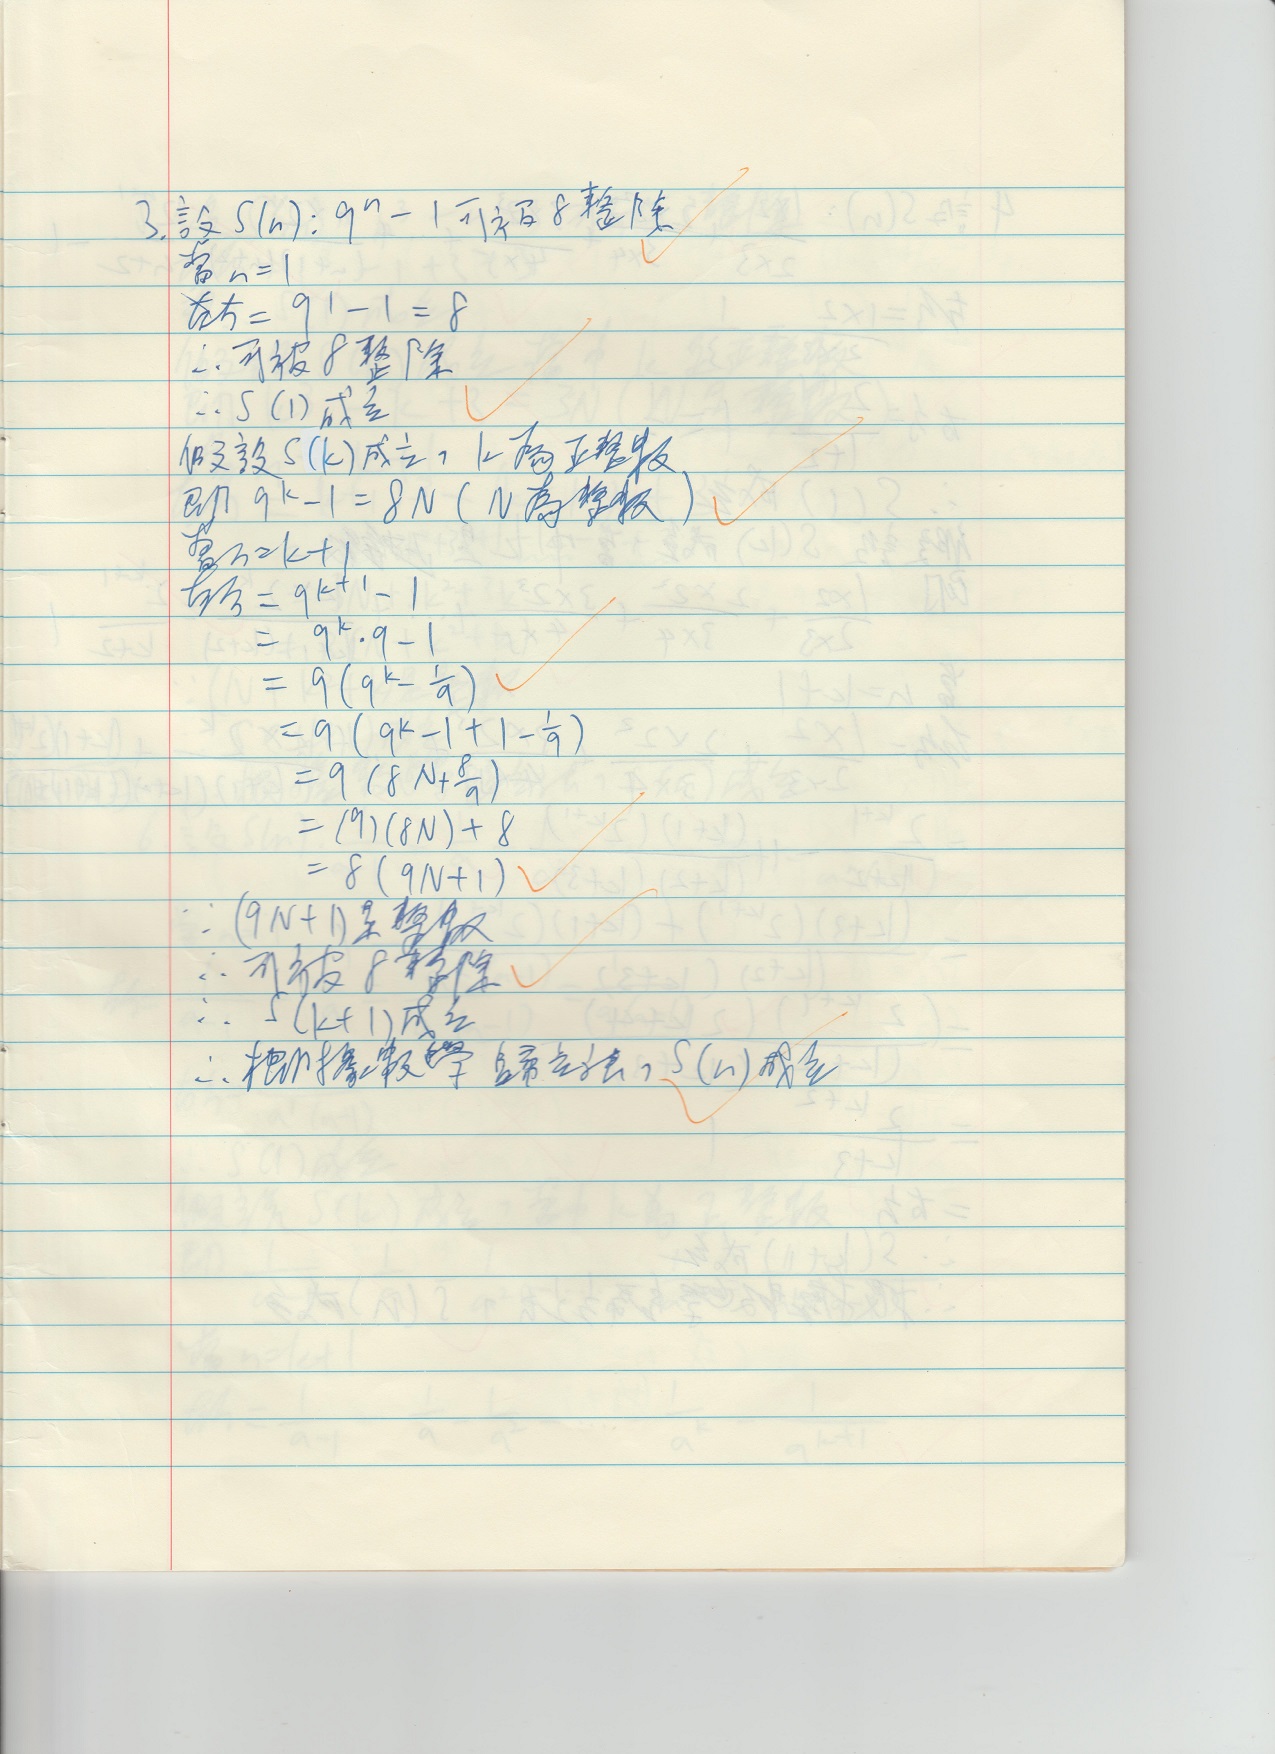 3. 設 S(n): 9ⁿ - 1 可被 8 整除
當 n = 1
左方 = 9¹ - 1 = 8
∴ 可被 8 整除
∴ S(1) 成立
假設 S(k) 成立，k 為正整數
即 9ᵏ - 1 = 8N ( N 為整數 )
當 n = k+1
左方 = 9ᵏ⁺¹ - 1
= 9ᵏ·9 - 1
= 9 ( 9ᵏ - 1/9 )
= 9 ( 9ᵏ - 1 + 1 - 1/9 )
= 9 ( 8N + 8/9 )
= (9)(8N) + 8
= 8 ( 9N + 1 )
∵ (9N+1) 是整數
∴ 可被 8 整除
∴ S(k+1) 成立
∴ 根據數學歸立法，S(n) 成立